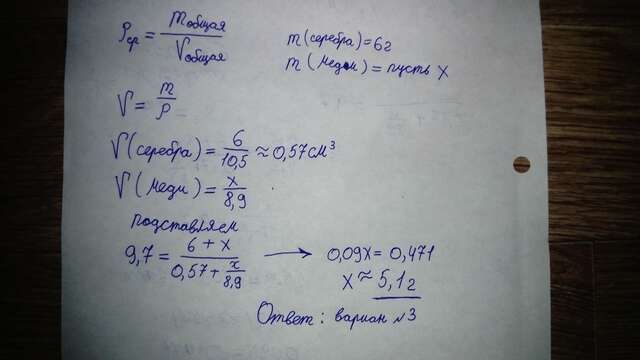 ρср = mобщая / Vобщая
m (серебра) = 6г
m (меди) = пусть x
V = m / ρ
V (серебра) = 6 / 10,5 ≈ 0,57 см³
V (меди) = x / 8,9
подставляем
9,7 = 6 + x / 0,57 + x / 8,9 → 0,09x = 0,471
x ≈ 5,1г
Ответ: вариан №3